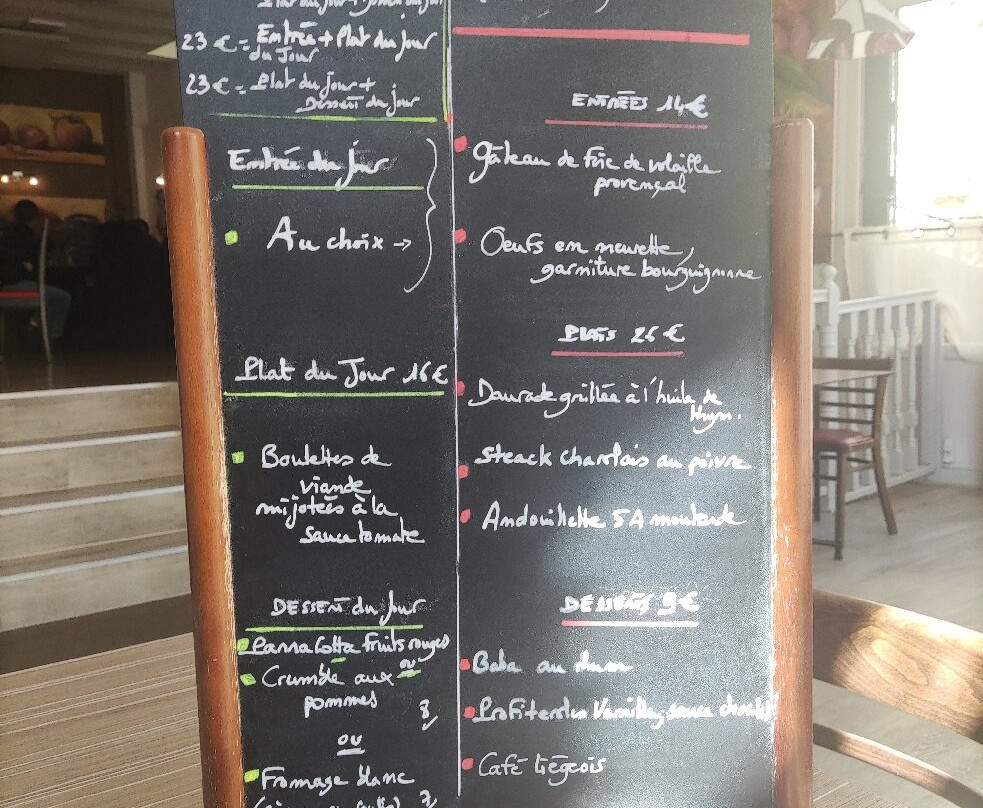 23 € = Entrée + Plat du jour
du Jour
23 € = Plat du jour +
Dessert du jour
Entrée du jour
Au choix →
Plat du Jour 16 €
Boulettes de
viande
mijotées à la
sauce tomate
DESSERT du jour
Panna Cotta fruits rouges
ou
Crumble aux
pommes
8,
ou
Fromage blanc
7,
ENTRÉES 14 €
Gâteau de foie de volaille
provençal
Oeufs en meurette,
garniture bourguignonne
PLATS 26 €
Daurade grillée à l'huile de
thym.
Steack charolais au poivre
Andouillette 5A moutarde
DESSERTS 9 €
Baba au rhum
Profiteroles Vanille, sauce chocolat
Café liégeois